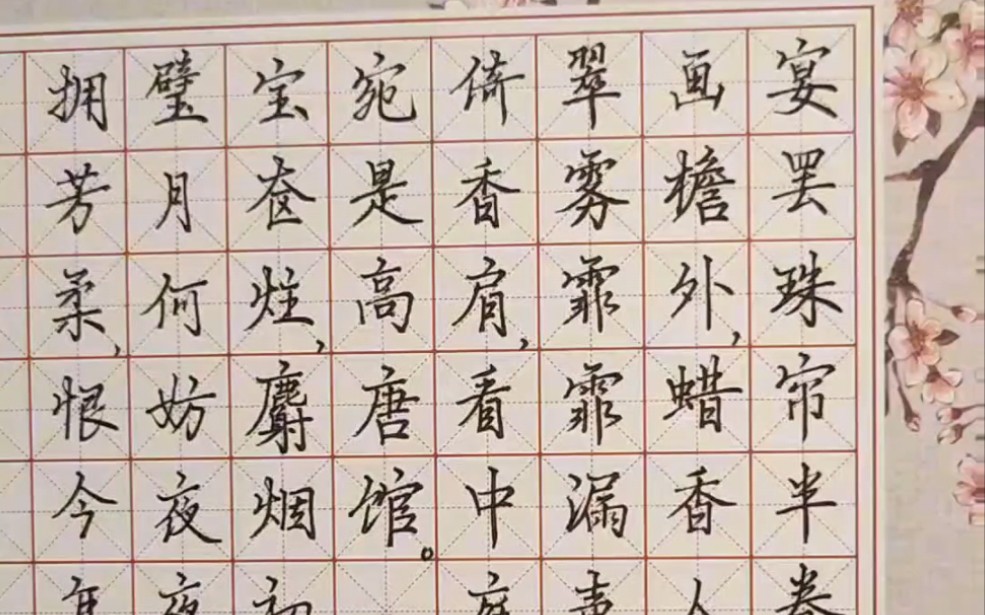 宴罢珠帘半卷
画檐外,蜡香人
翠雾霏霏漏声
倚香肩,看中庭
宛是高唐馆。
宝奁炷,麝烟初
璧月何妨夜夜
拥芳柔,恨今年